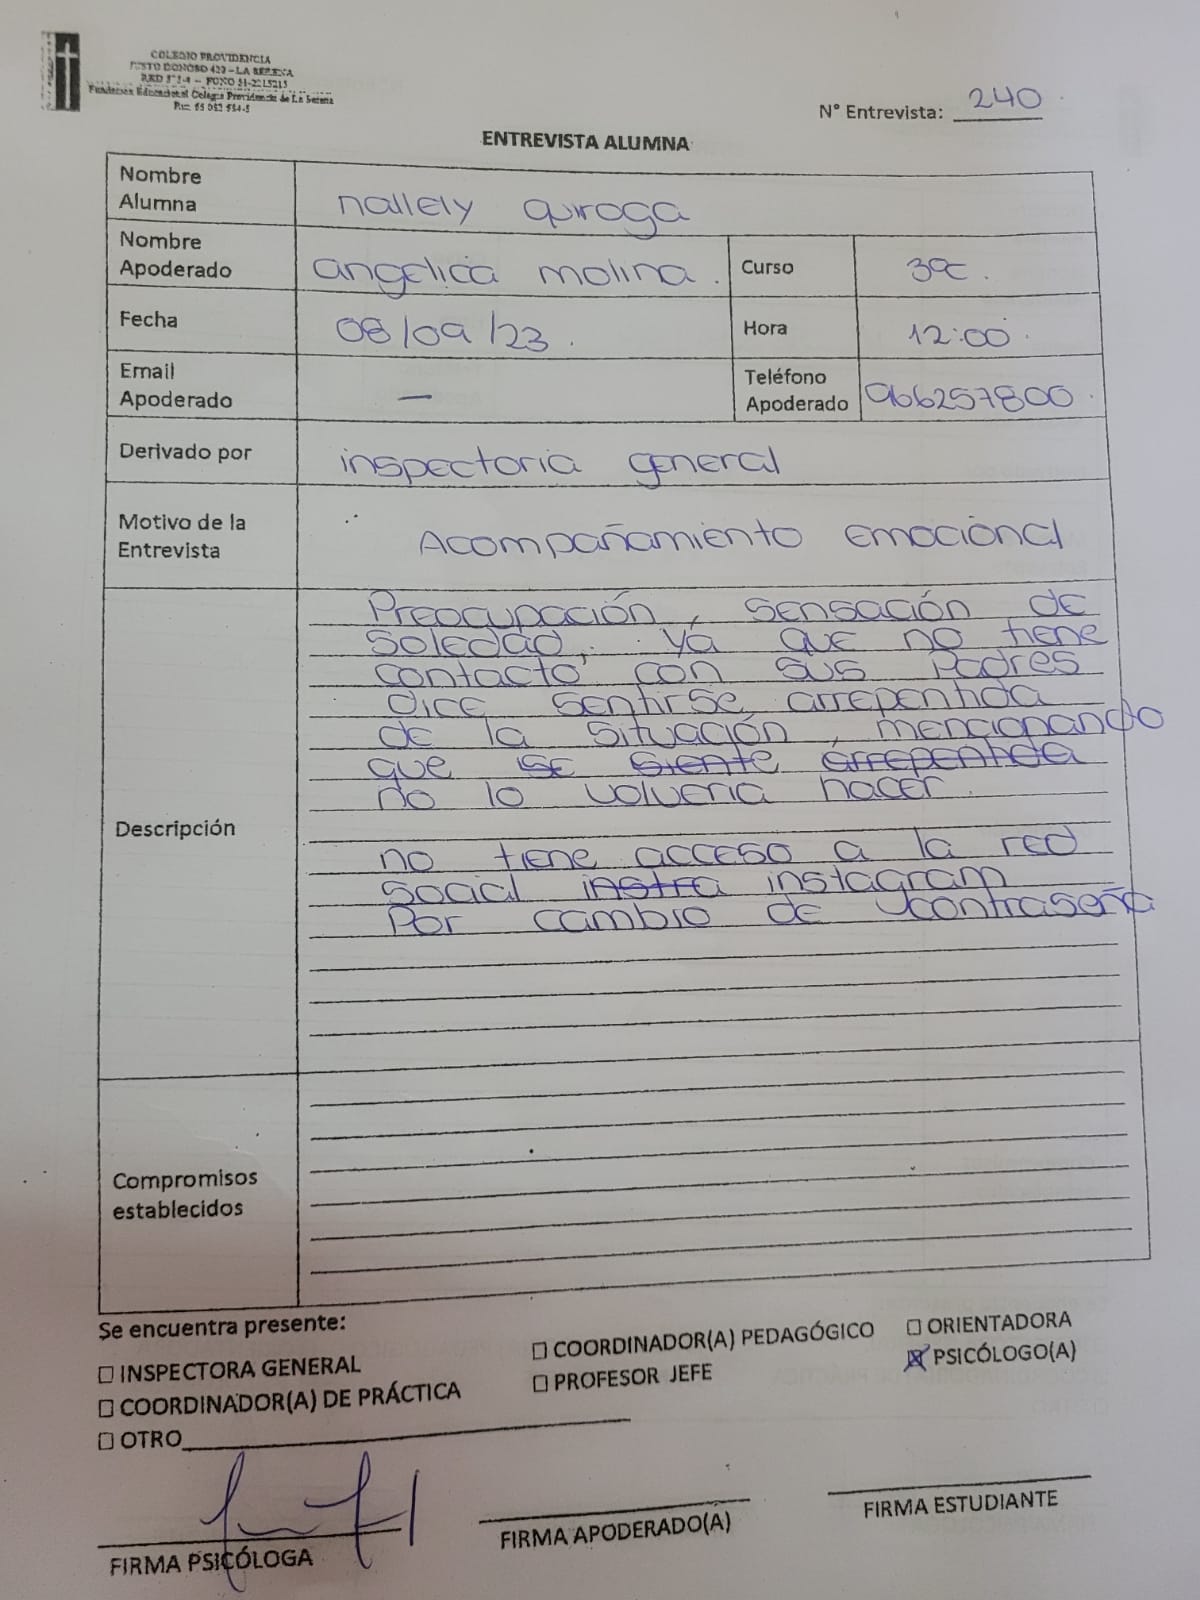 COLEGIO PROVIDENCIA
JUSTO DONOSO 420 – LA SERENA
FONO 51-2215215
Fundación Educacional Colegio Providencia de La Serena
N° Entrevista: 240
ENTREVISTA ALUMNA
Nombre Alumna
nallely quiroga
Nombre Apoderado
angelica molina.
Curso
3ºC.
Fecha
08/09/23.
Hora
12:00.
Email Apoderado
—
Teléfono Apoderado
966257800.
Derivado por
inspectoria general
Motivo de la Entrevista
Acompañamiento emocional
Descripción
Preocupación, sensación de
soledad, ya que no tiene
contacto con sus padres
dice sentirse arrepentida
de la situación, mencionando
que se siente arrepentida
no lo volveria hacer.
no tiene acceso a la red
social instra instagram
Por cambio de contraseña
Compromisos establecidos
Se encuentra presente:
☐ INSPECTORA GENERAL
☐ COORDINADOR(A) PEDAGÓGICO
☐ ORIENTADORA
☐ COORDINADOR(A) DE PRÁCTICA
☐ PROFESOR JEFE
☒ PSICÓLOGO(A)
☐ OTRO
FIRMA PSICÓLOGA
FIRMA APODERADO(A)
FIRMA ESTUDIANTE